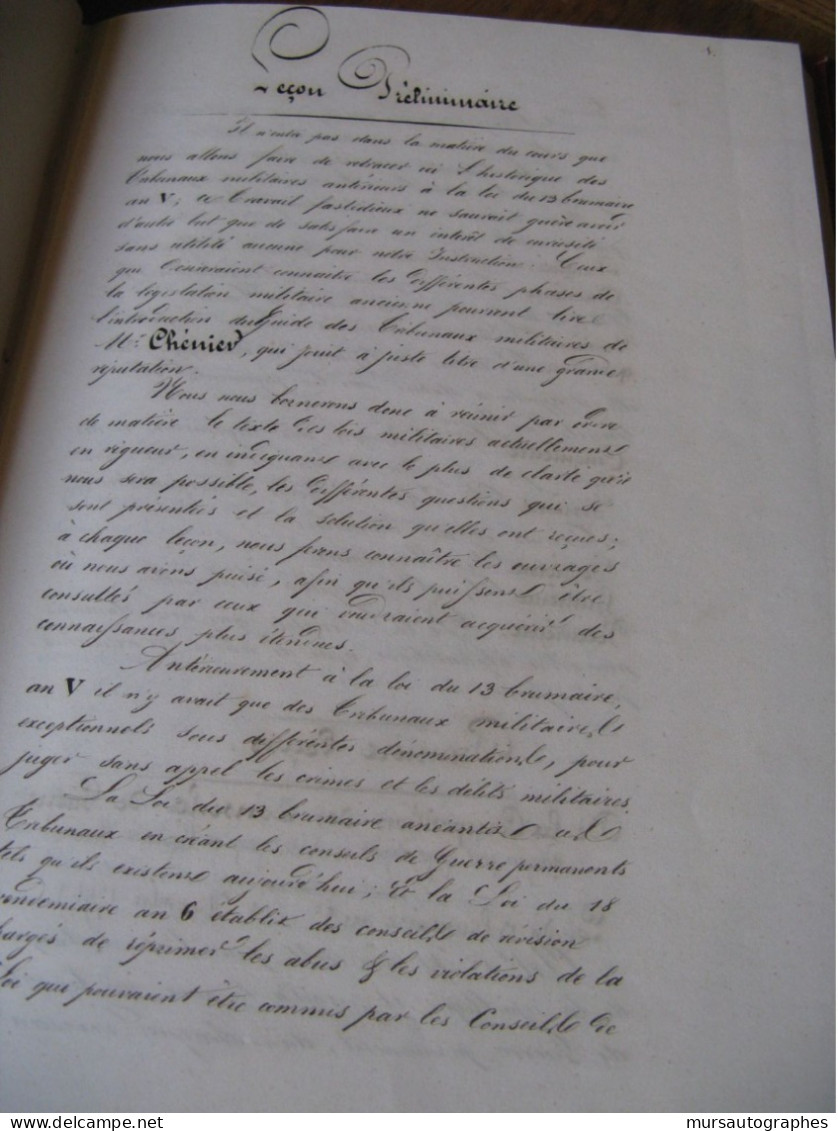 1.
Leçon Préliminaire
Il n'entre pas dans la matière du cours que
nous allons faire de retracer ici l'historique des
tribunaux militaires antérieurs à la loi du 13 brumaire
an V; ce travail fastidieux ne saurait guère avoir
d'autre but que de satisfaire un intérêt de curiosité
sans utilité aucune pour notre Instruction. Ceux
qui désireraient connaître les différentes phases de
la législation militaire ancienne peuvent lire
l'introduction du Guide des Tribunaux militaires de
Mr. Chénier, qui jouit à juste titre d'une grande
réputation.
Nous nous bornerons donc à réunir par ordre
de matière le texte des lois militaires actuellement
en vigueur, en indiquant avec le plus de clarté qu'il
nous sera possible, les différentes questions qui se
sont présentés et la solution qu'elles ont reçues;
à chaque leçon, nous ferons connaître les ouvrages
où nous avons puisé, afin qu'ils puissent être
consultés par ceux qui voudraient acquérir des
connaissances plus étendues.
Antérieurement à la loi du 13 brumaire,
an V il n'y avait que des tribunaux militaires
exceptionnels sous différentes dénominations, pour
juger sans appel les crimes et les délits militaires.
La Loi du 13 brumaire anéantit ces
Tribunaux en créant les conseils de Guerre permanents
tels qu'ils existent aujourd'hui; Et la Loi du 18
vendémiaire an 6 établit des conseils de révision
chargés de réprimer les abus & les violations de la
Loi qui pouvaient être commis par les Conseils de
mursautographes